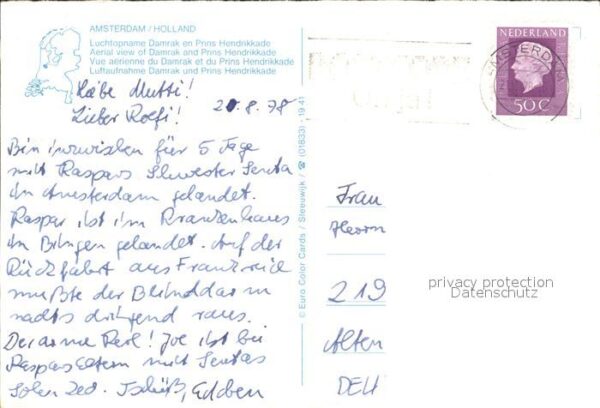 AMSTERDAM / HOLLAND
Luchtopname Damrak en Prins Hendrikkade
Aerial view of Damrak and Prins Hendrikkade
Vue aerienne du Damrak et du Prins Hendrikkade
Luftaufnahme Damrak und Prins Hendrikkade
Liebe Mutti!
Lieber Rolfi! 21.8.78
Bin inzwischen für 5 Tage
mit Kaspars Schwester Senta
in Amsterdam gelandet.
Kaspar ist im Krankenhaus
in Bringen gelandet. Auf der
Rückfahrt aus Frankreich
mußte der Blinddarm
nachts dringend raus.
Der arme Kerl! Joe ist bei
Kaspars Eltern mit Sentas
Sohn Zed. Tschüß,
© Euro Color Cards / Sleeuwijk / ☎ (01833) - 19 41
NEDERLAND
50 C
AMSTERDAM
Frau
Herrn
219
Alten
DEU
privacy protection
Datenschutz